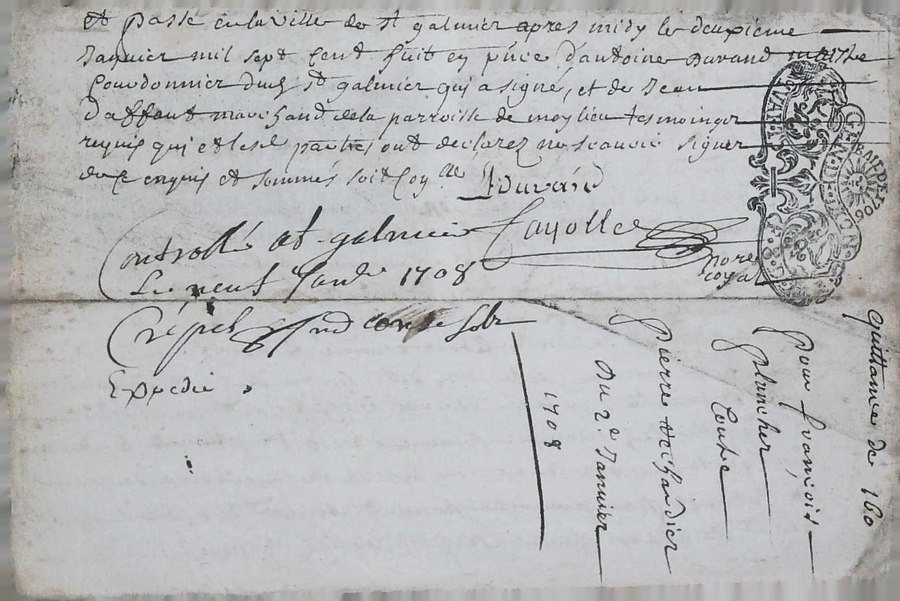 et passé en la ville de st galmier apres midy le deuxiéme
Janvier mil sept Cent huit en pñce d'antoine Durand maistre
Courdonnier dud st galmier qui a signé, et de Jean
Daffaut marchand de la parroisse de meylieu tesmoingz
requis qui et lesd parties ont declarez ne scavoir signer
de Ce enquis et sommés soit Coñlle ADurand
Controllé a st galmier
Le neuf Janv 1708
fayolle
nore
royal
Expedié
quittance de 160
pour françois
plancher
Contre
pierre
Du 2e Janvier
1708